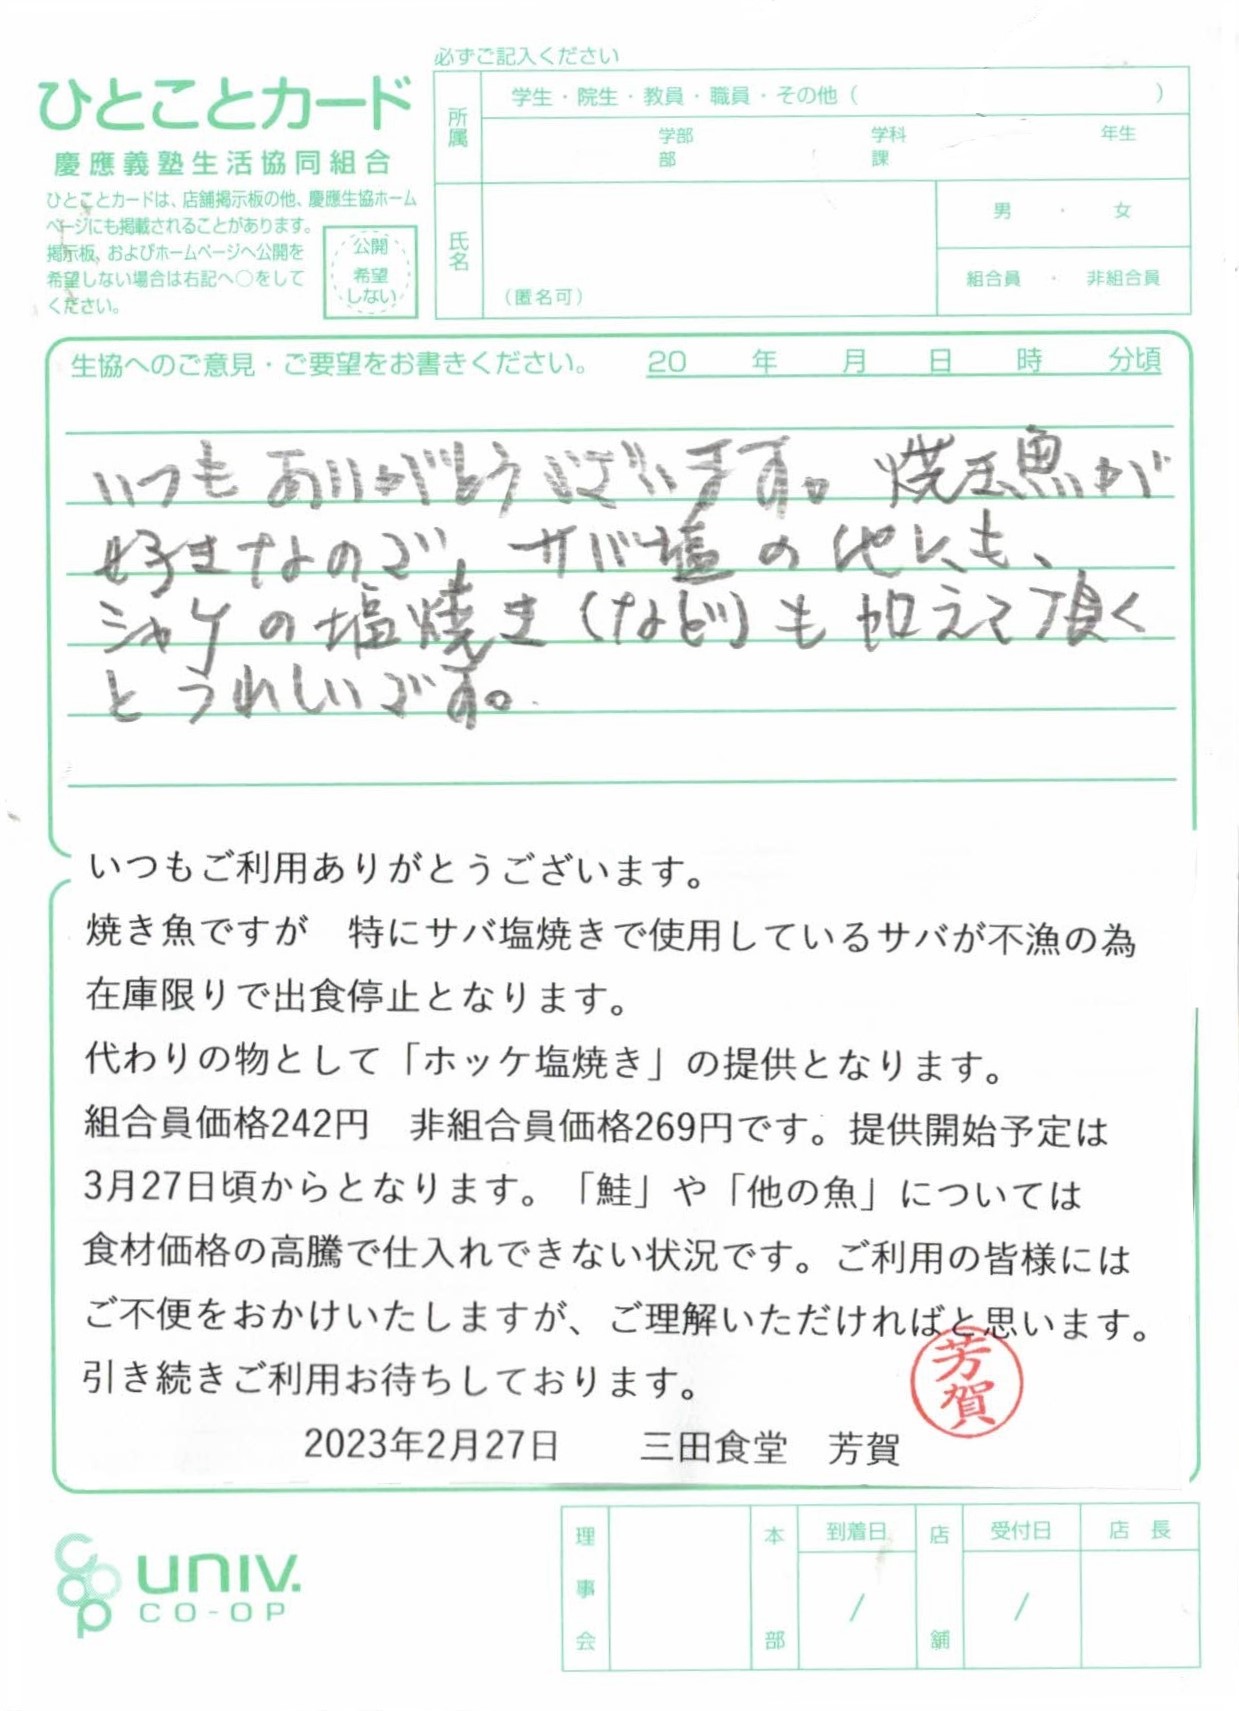 必ずご記入ください
ひとことカード
慶應義塾生活協同組合
ひとことカードは、店舗掲示板の他、慶應生協ホーム
ページにも掲載されることがあります。
掲示板、およびホームページへ公開を
希望しない場合は右記へ○をして
ください。
公開
希望
しない
所属
学生・院生・教員・職員・その他（ ）
学部 学科 年生
部 課
氏名
（匿名可）
男 ・ 女
組合員 ・ 非組合員
生協へのご意見・ご要望をお書きください。 20 年 月 日 時 分頃
いつもありがとうございます。焼き魚が
好きなので、サバ塩の他にも、
シャケの塩焼き（など）も加えて頂く
とうれしいです。
いつもご利用ありがとうございます。
焼き魚ですが　特にサバ塩焼きで使用しているサバが不漁の為
在庫限りで出食停止となります。
代わりの物として「ホッケ塩焼き」の提供となります。
組合員価格242円　非組合員価格269円です。提供開始予定は
3月27日頃からとなります。「鮭」や「他の魚」については
食材価格の高騰で仕入れできない状況です。ご利用の皆様には
ご不便をおかけいたしますが、ご理解いただければと思います。
引き続きご利用お待ちしております。
芳賀
2023年2月27日　　三田食堂　芳賀
coop univ.
CO-OP
理事会 本部 到着日 店舗 受付日 店長
/ /